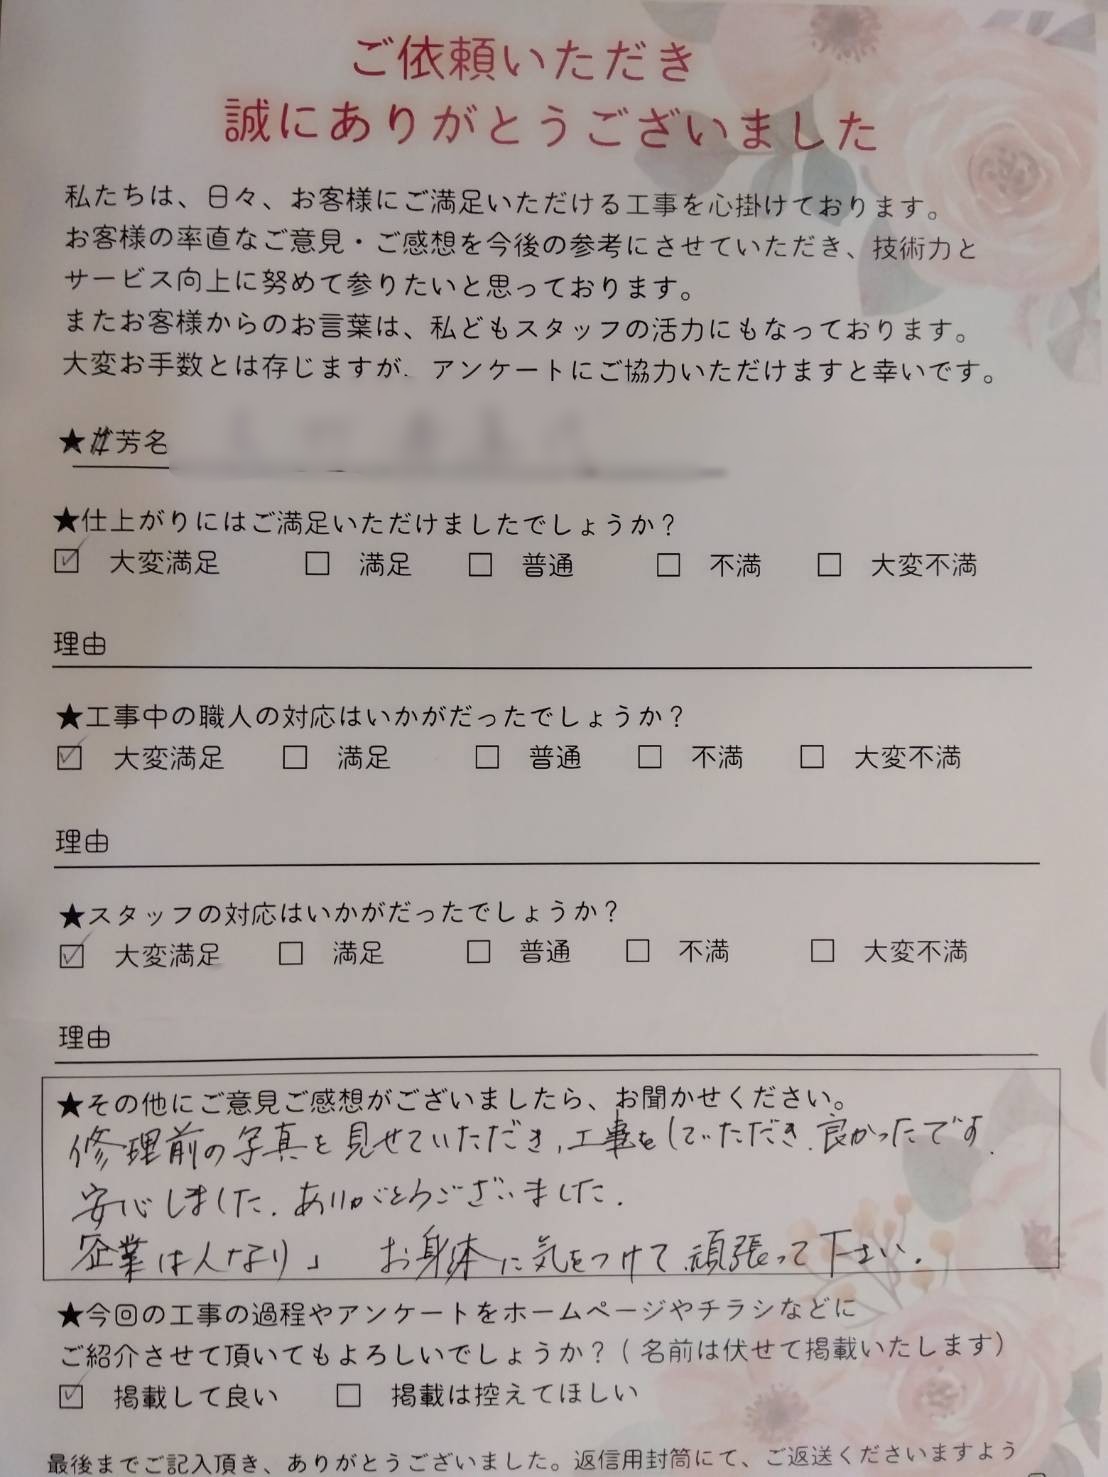 ご依頼いただき
誠にありがとうございました
私たちは、日々、お客様にご満足いただける工事を心掛けております。
お客様の率直なご意見・ご感想を今後の参考にさせていただき、技術力と
サービス向上に努めて参りたいと思っております。
またお客様からのお言葉は、私どもスタッフの活力にもなっております。
大変お手数とは存じますが、アンケートにご協力いただけますと幸いです。
★芳名
★仕上がりにはご満足いただけましたでしょうか？
☑ 大変満足 □ 満足 □ 普通 □ 不満 □ 大変不満
理由
★工事中の職人の対応はいかがだったでしょうか？
☑ 大変満足 □ 満足 □ 普通 □ 不満 □ 大変不満
理由
★スタッフの対応はいかがだったでしょうか？
☑ 大変満足 □ 満足 □ 普通 □ 不満 □ 大変不満
理由
★その他にご意見ご感想がございましたら、お聞かせください。
修理前の写真を見せていただき、工事をしていただき、良かったです。
安心しました。ありがとうございました。
「企業は人なり」 お身体に気をつけて頑張って下さい。
★今回の工事の過程やアンケートをホームページやチラシなどに
ご紹介させて頂いてもよろしいでしょうか？（名前は伏せて掲載いたします）
☑ 掲載して良い □ 掲載は控えてほしい
最後までご記入頂き、ありがとうございました。返信用封筒にて、ご返送くださいますよう